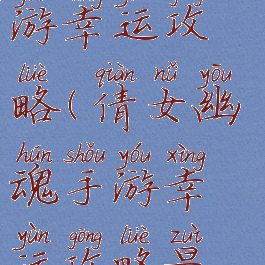 游幸运攻
lüè qiàn nǚ yōu
略(倩女幽
hún shǒu yóu xìng
魂手游幸
yùn gōng lüè zuì
运攻略最